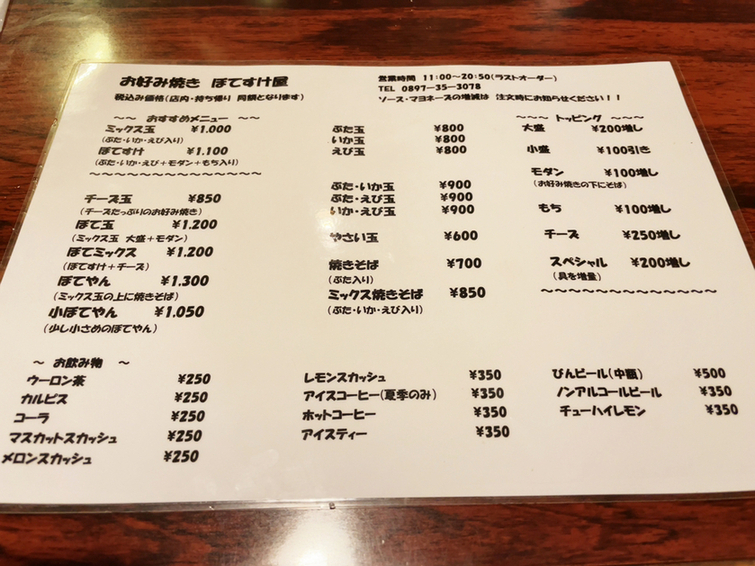 お好み焼き ぼてすけ屋
税込み価格(店内・持ち帰り 同額となります)
営業時間 11:00～20:50(ラストオーダー)
TEL 0897-35-3078
ソース・マヨネーズの増減は 注文時にお知らせください！！
～～ おすすめメニュー ～～
ミックス玉 ¥1.000
(ぶた・いか・えび入り)
ぼてすけ ¥1.100
(ぶた・いか・えび＋モダン＋もち入り)
～～～～～～～～～～～～～
チーズ玉 ¥850
(チーズたっぷりのお好み焼き)
ぼて玉 ¥1.200
(ミックス玉 大盛＋モダン)
ぼてミックス ¥1.200
(ぼてすけ＋チーズ)
ぼてやん ¥1.300
(ミックス玉の上に焼きそば)
小ぼてやん ¥1.050
(少し小さめのぼてやん)
ぶた玉 ¥800
いか玉 ¥800
えび玉 ¥800
ぶた・いか玉 ¥900
ぶた・えび玉 ¥900
いか・えび玉 ¥900
やさい玉 ¥600
焼きそば ¥700
(ぶた入り)
ミックス焼きそば ¥850
(ぶた・いか・えび入り)
～～～ トッピング ～～～
大盛 ¥200増し
小盛 ¥100引き
モダン ¥100増し
(お好み焼きの下にそば)
もち ¥100増し
チーズ ¥250増し
スペシャル ¥200増し
(具を増量)
～～～～～～～～～～～～～
～ お飲み物 ～
ウーロン茶 ¥250
カルピス ¥250
コーラ ¥250
マスカットスカッシュ ¥250
メロンスカッシュ ¥250
レモンスカッシュ ¥350
アイスコーヒー(夏季のみ) ¥350
ホットコーヒー ¥350
アイスティー ¥350
びんビール(中瓶) ¥500
ノンアルコールビール ¥350
チューハイレモン ¥350